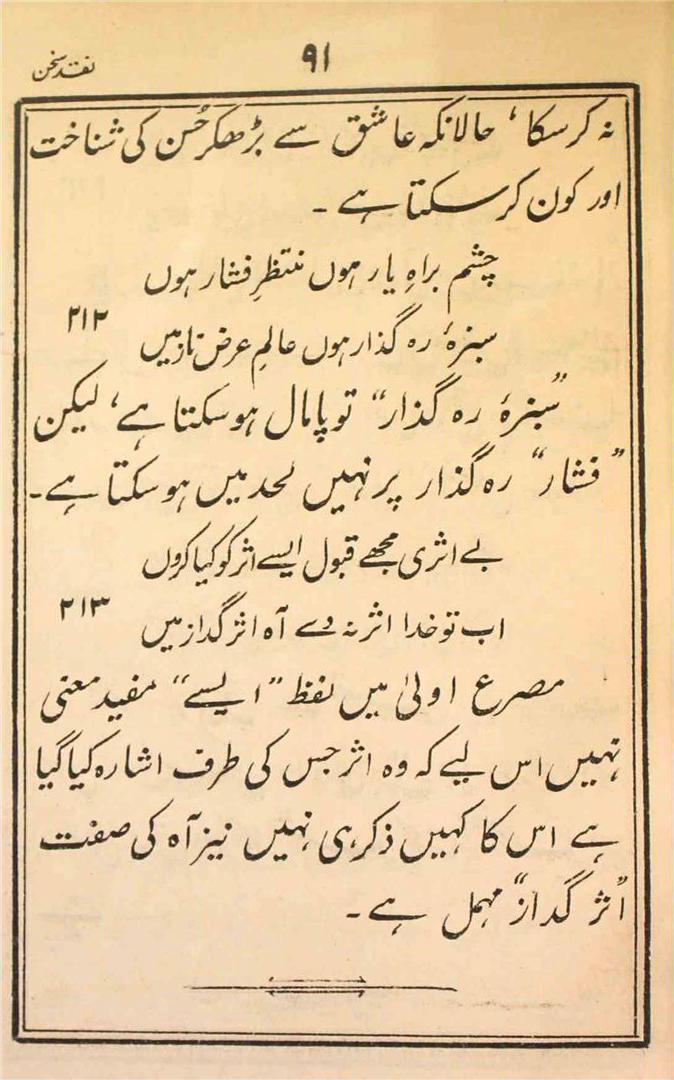 نقد سخن
۹۱
نہ کرسکا، حالانکہ عاشق سے بڑھکر حُسن کی شناخت
اور کون کرسکتا ہے ۔
چشم براہِ یار ہوں منتظرِ فشار ہوں
سبزۂ رہ گذار ہوں عالمِ عرض ناز میں
۲۱۲
”سبزۂ رہ گذار“ تو پامال ہوسکتا ہے، لیکن
”فشار“ رہ گذار پر نہیں لحد میں ہوسکتا ہے ۔
بے اثری مجھے قبول ایسے اثر کو کیا کروں
اب تو خدا اثر نہ دے آہ اثر گداز میں
۲۱۳
مصرع اولیٰ میں لفظ ”ایسے“ مفید معنی
نہیں اس لیے کہ وہ اثر جس کی طرف اشارہ کیا گیا
ہے اس کا کہیں ذکر ہی نہیں نیز آہ کی صفت
”اثر گداز“ مہمل ہے ۔